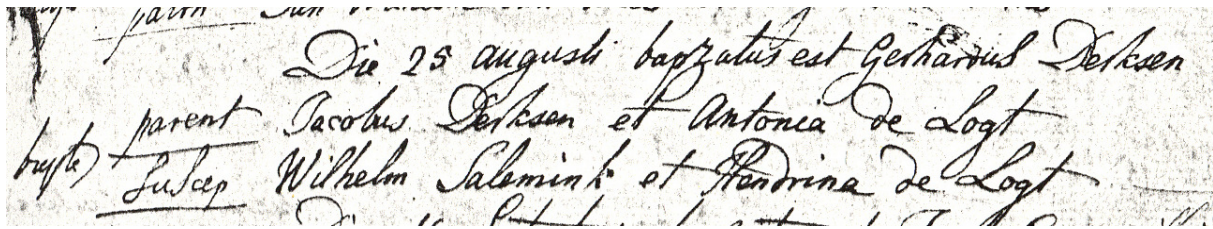 Die 25 augusti bapzatus est Gerhardus Derksen
parent Jacobus Derksen et Antonia de Logt
Suscep Wilhelm Salemink et Hendrina de Logt